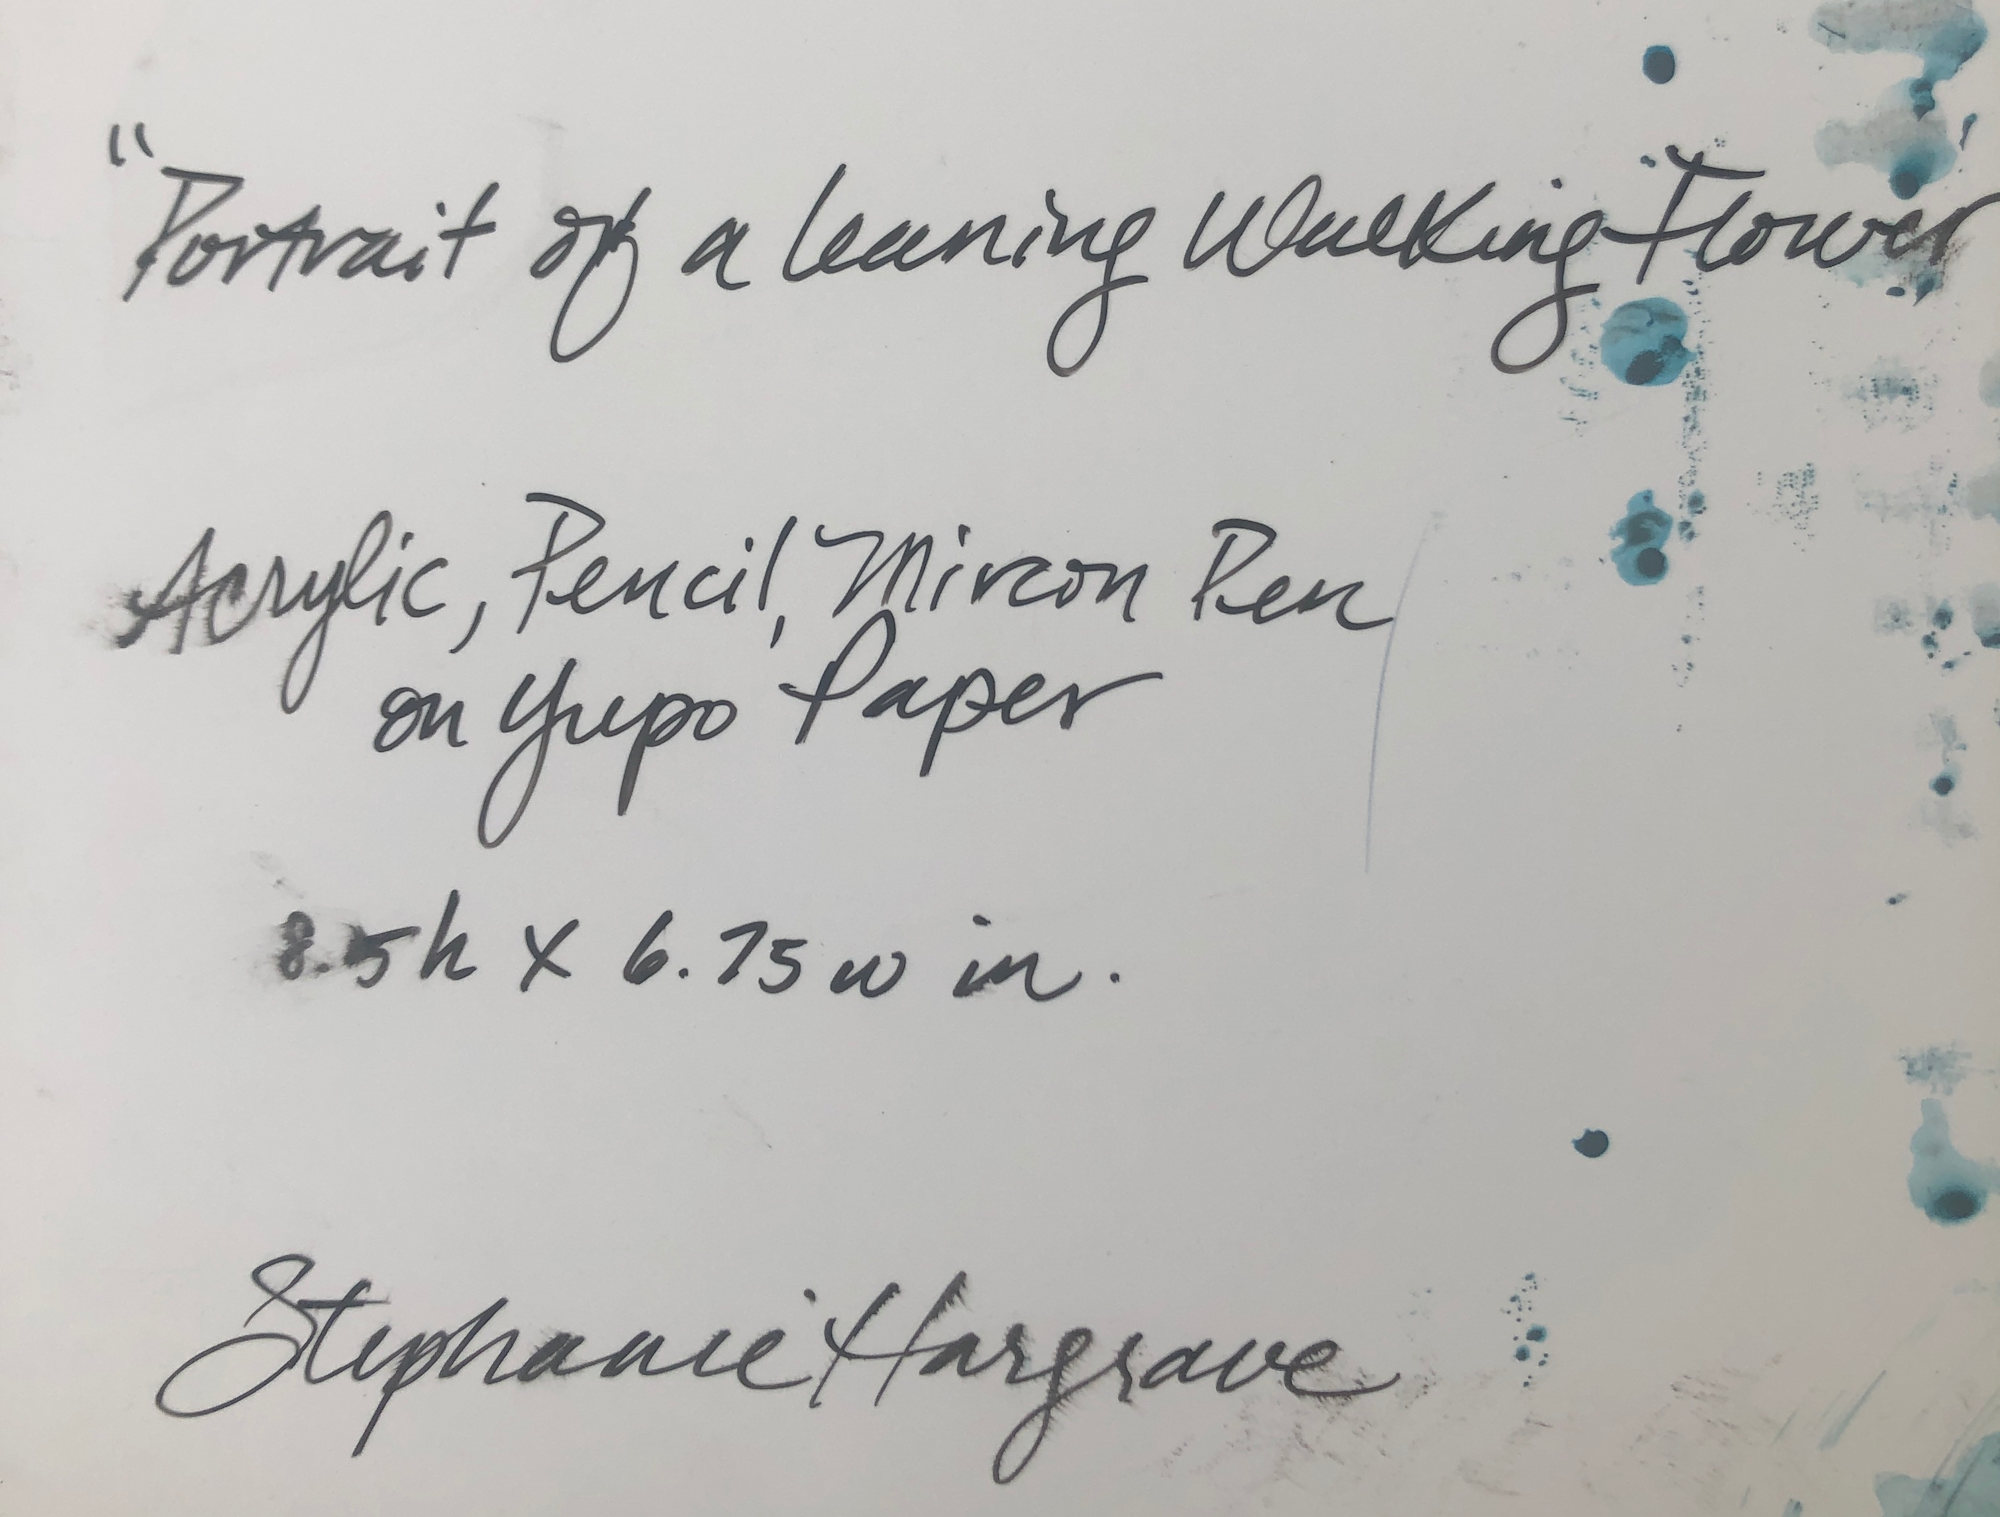 "Portrait of a Leaning Walking Flower
Acrylic, Pencil, Mircon Pen
on Yupo Paper
8.5h x 6.75w in.
Stephanie Hargrave